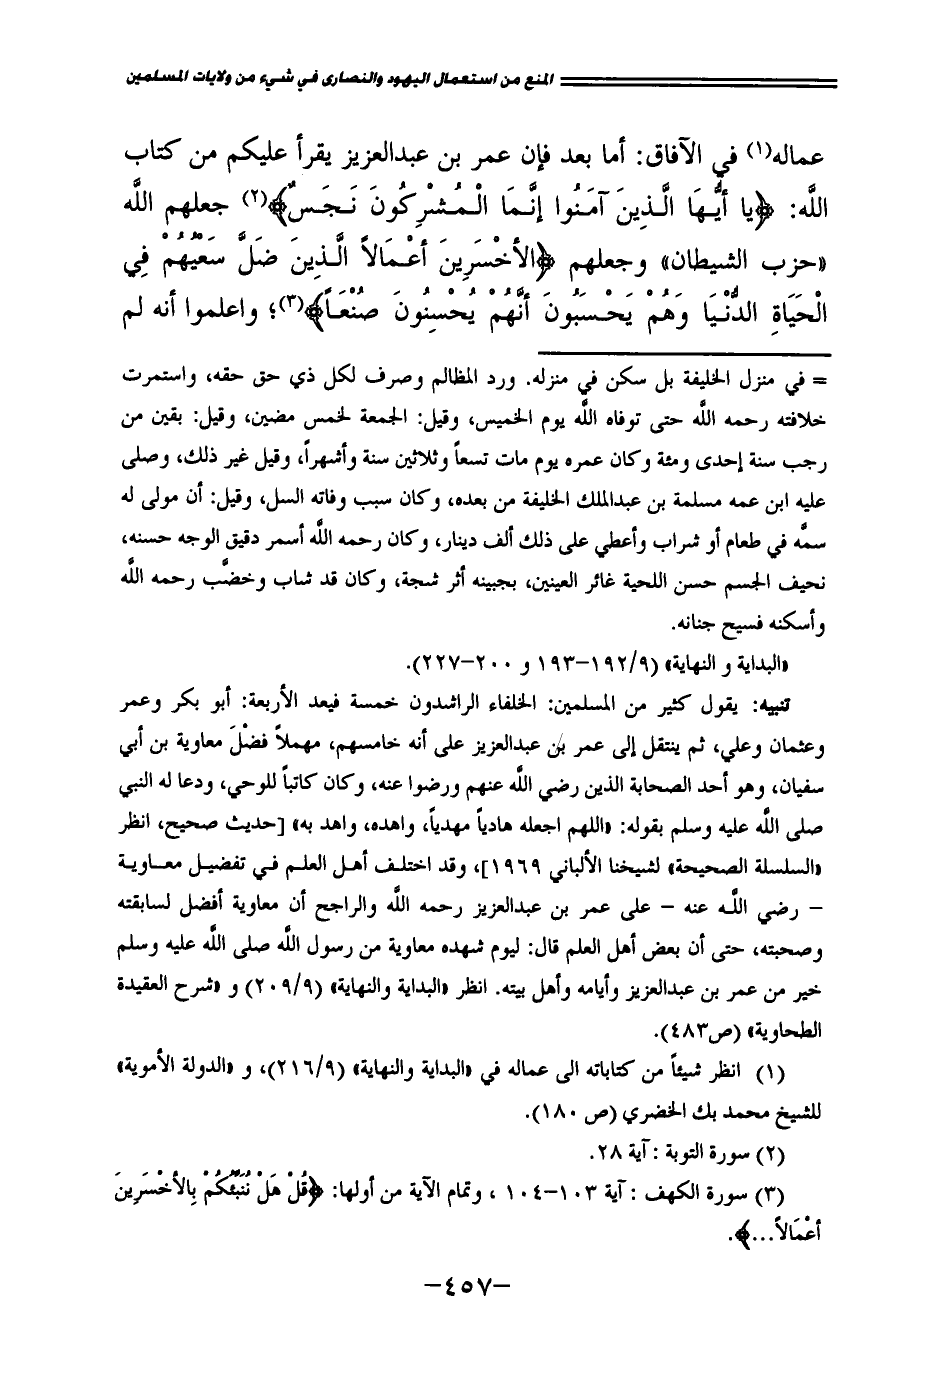 المنع من استعمال اليهود والنصارى في شيء من ولايات المسلمين
عماله(١) في الآفاق: أما بعد فإن عمر بن عبدالعزيز يقرأ عليكم من كتاب
اللَّه: ﴿يا أَيُّهَا الَّذِينَ آمَنُوا إِنَّمَا الْمُشْرِكُونَ نَجَسٌ﴾(٢) جعلهم اللَّه
«حزب الشيطان» وجعلهم ﴿الأخْسَرِينَ أَعْمَالاً الَّذِينَ ضَلَّ سَعْيُهُمْ فِي
الْحَيَاةِ الدُّنْيَا وَهُمْ يَحْسَبُونَ أَنَّهُمْ يُحْسِنُونَ صُنْعَاً﴾(٣)؛ واعلموا أنه لم
= في منزل الخليفة بل سكن في منزله. ورد المظالم وصرف لكل ذي حق حقه، واستمرت
خلافته رحمه اللَّه حتى توفاه اللَّه يوم الخميس، وقيل: الجمعة لخمس مضين، وقيل: بقين من
رجب سنة إحدى ومئة وكان عمره يوم مات تسعاً وثلاثين سنة وأشهراً، وقيل غير ذلك، وصلى
عليه ابن عمه مسلمة بن عبدالملك الخليفة من بعده، وكان سبب وفاته السل، وقيل: أن مولى له
سمَّه في طعام أو شراب وأعطي على ذلك ألف دينار، وكان رحمه اللَّه أسمر دقيق الوجه حسنه،
نحيف الجسم حسن اللحية غائر العينين، بجبينه أثر شجة، وكان قد شاب وخضَّب رحمه اللَّه
وأسكنه فسيح جنانه.
«البداية و النهاية» (١٩٢/٩-١٩٣ و ٢٠٠-٢٢٧).
تنبيه: يقول كثير من المسلمين: الخلفاء الراشدون خمسة فيعد الأربعة: أبو بكر وعمر
وعثمان وعلي، ثم ينتقل إلى عمر بن عبدالعزيز على أنه خامسهم، مهملاً فضْلَ معاوية بن أبي
سفيان، وهو أحد الصحابة الذين رضي اللَّه عنهم ورضوا عنه، وكان كاتباً للوحي، ودعا له النبي
صلى اللَّه عليه وسلم بقوله: «اللهم اجعله هادياً مهدياً، واهده، واهد به» [حديث صحيح، انظر
«السلسلة الصحيحة» لشيخنا الألباني ١٩٦٩]، وقد اختلف أهل العلم في تفضيل معاوية
- رضي اللَّه عنه - على عمر بن عبدالعزيز رحمه اللَّه والراجح أن معاوية أفضل لسابقته
وصحبته، حتى أن بعض أهل العلم قال: ليوم شهده معاوية من رسول اللَّه صلى اللَّه عليه وسلم
خير من عمر بن عبدالعزيز وأيامه وأهل بيته. انظر «البداية والنهاية» (٢٠٩/٩) و «شرح العقيدة
الطحاوية» (ص٤٨٣).
(١) انظر شيئاً من كتاباته الى عماله في «البداية والنهاية» (٢١٦/٩)، و «الدولة الأموية»
للشيخ محمد بك الخضري (ص ١٨٠).
(٢) سورة التوبة : آية ٢٨.
(٣) سورة الكهف : آية ١٠٣-١٠٤ ، وتمام الآية من أولها: ﴿قُلْ هَلْ نُنَبِّئُكُمْ بِالأخْسَرِينَ
أَعْمَالاً...﴾.
-٤٥٧-